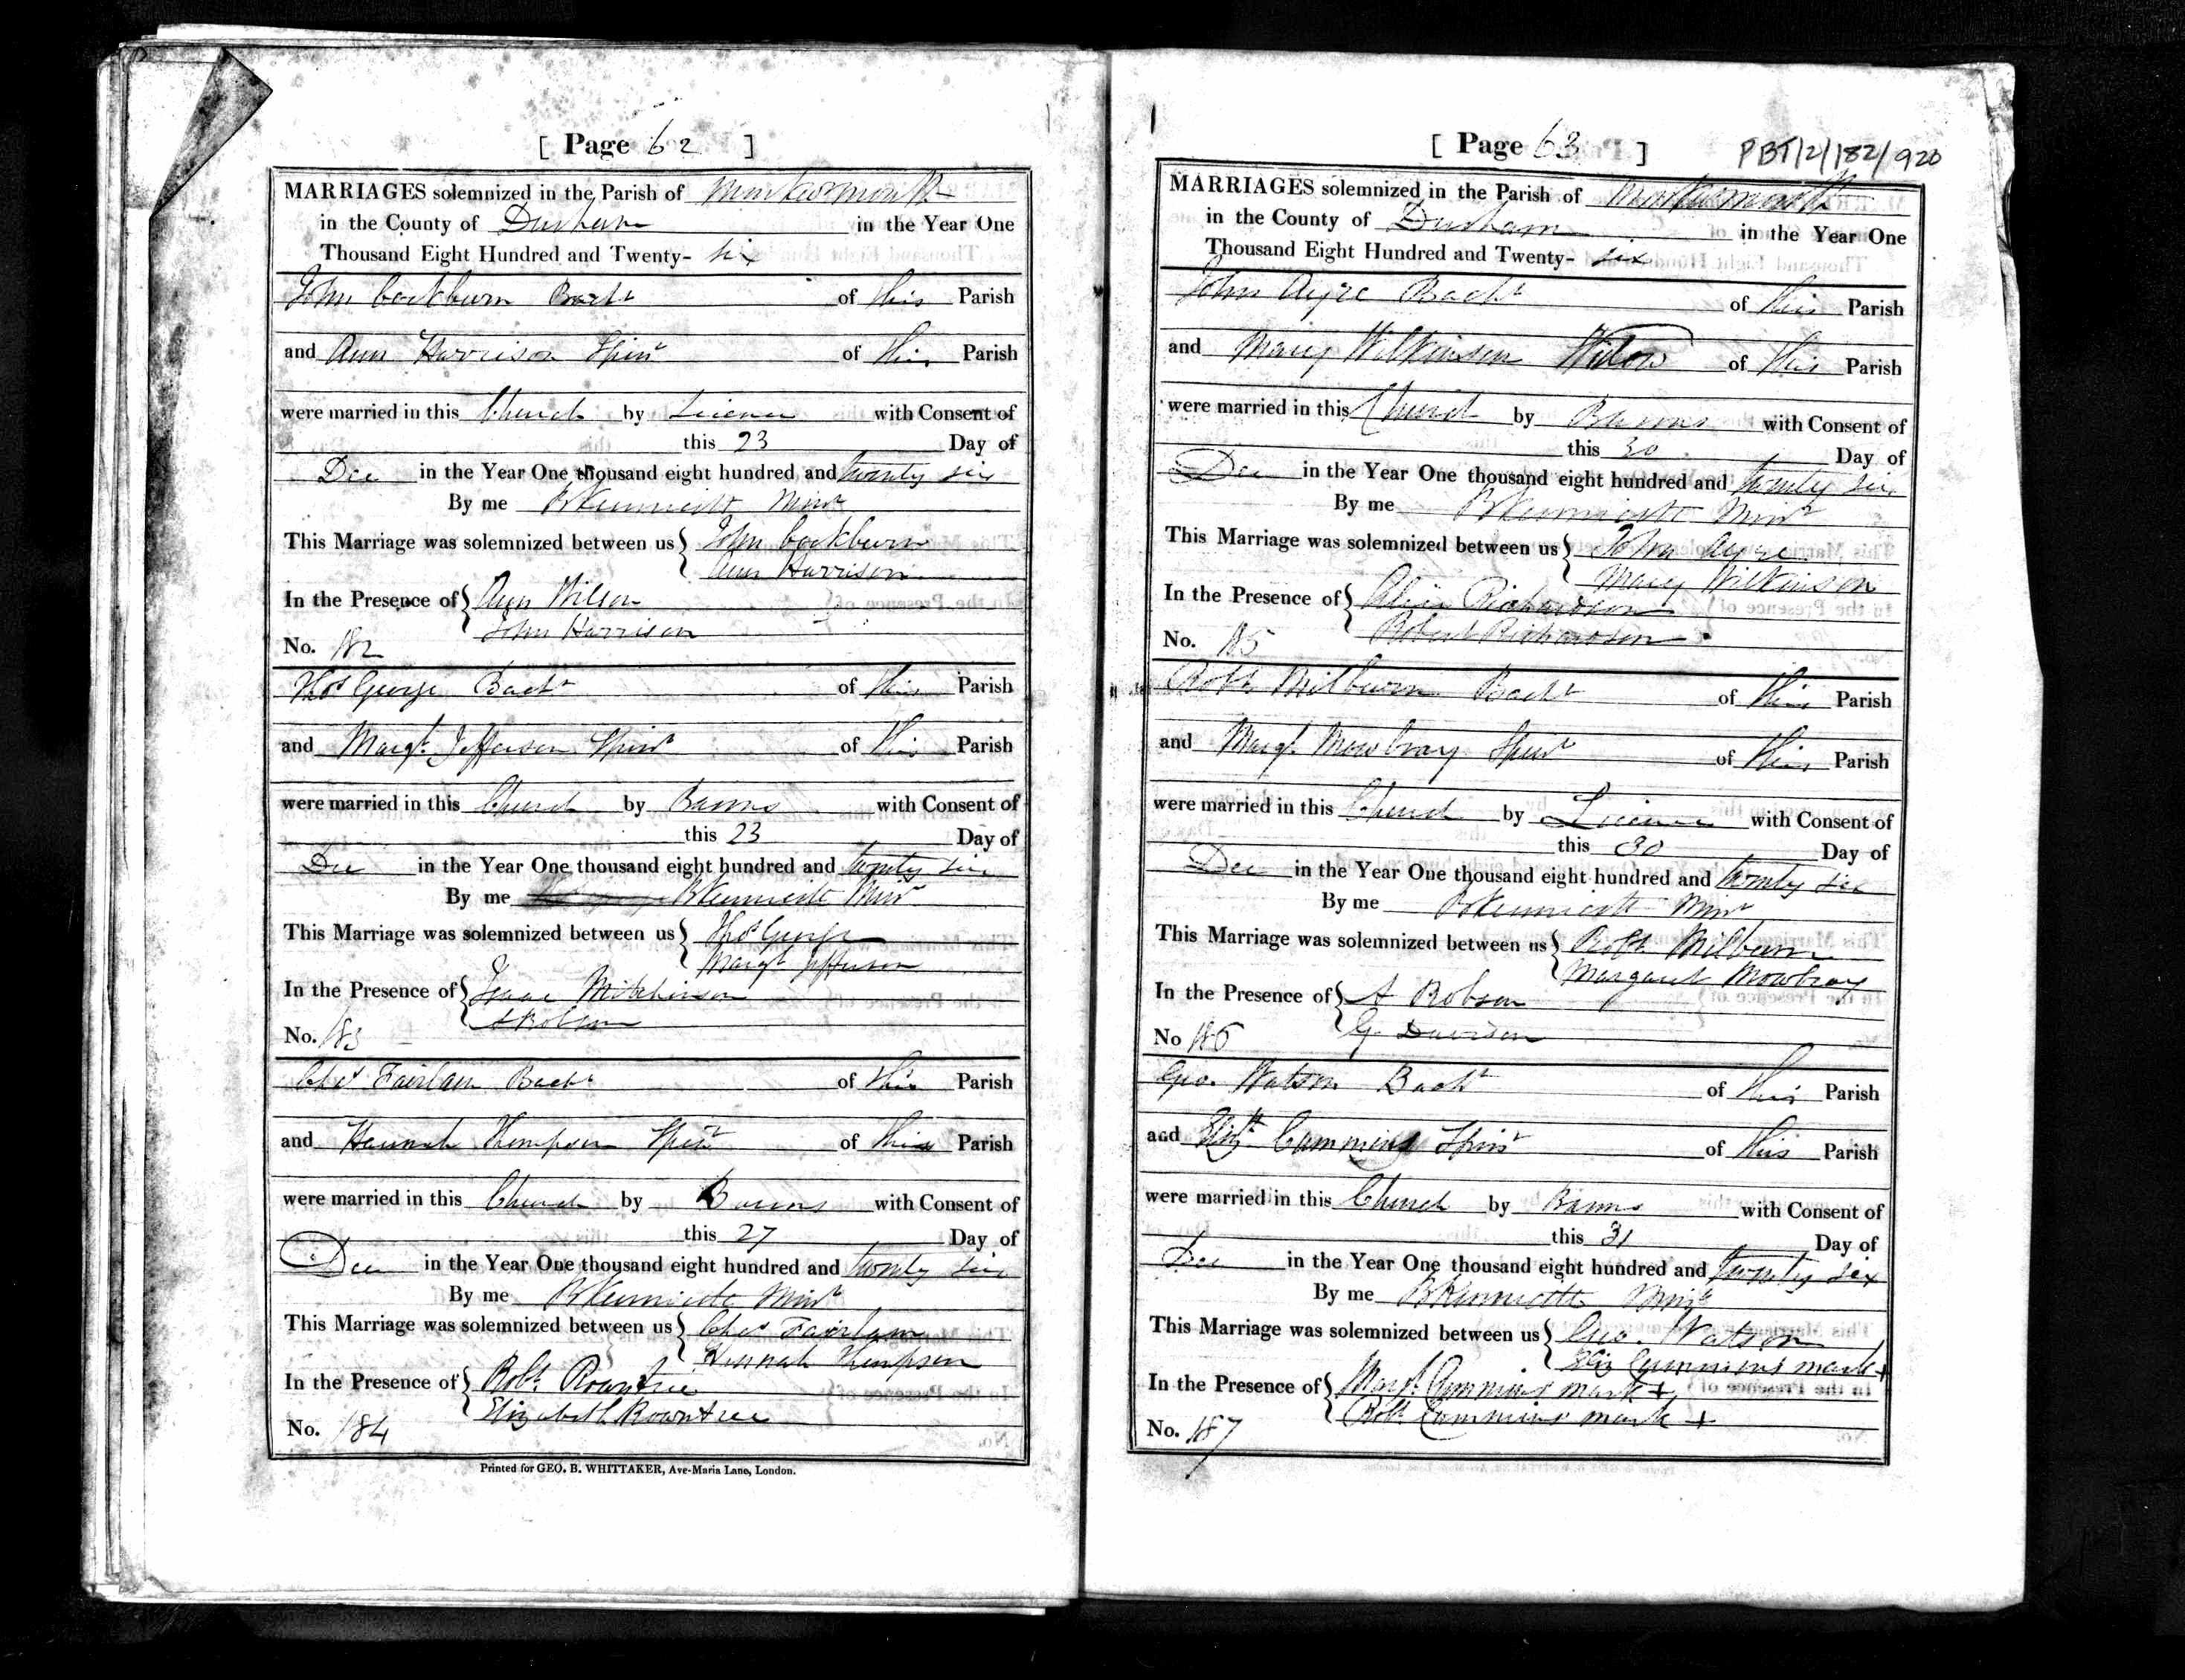 [ Page 62 ]
MARRIAGES solemnized in the Parish of Monkwearmouth
in the County of Durham in the Year One
Thousand Eight Hundred and Twenty- six
John Cockburn Bachr of this Parish
and Ann Harrison Spinr of this Parish
were married in this Church by Licence with Consent of
this 23 Day of
Dec in the Year One thousand eight hundred and twenty six
By me B Kennicott Minr
This Marriage was solemnized between us { John Cockburn
Ann Harrison
In the Presence of { Ann Wilson
John Harrison
No. 182
Thos George Bachr of this Parish
and Margt Jefferson Spinr of this Parish
were married in this Church by Banns with Consent of
this 23 Day of
Dec in the Year One thousand eight hundred and twenty six
By me B Kennicott Minr
This Marriage was solemnized between us { Thos George
Margt Jefferson
In the Presence of { Isaac Mitchinson
A Robson
No. 183
Chas Fairlam Bachr of this Parish
and Hannah Thompson Spinr of this Parish
were married in this Church by Banns with Consent of
this 27 Day of
Dec in the Year One thousand eight hundred and twenty six
By me B Kennicott Minr
This Marriage was solemnized between us { Chas Fairlam
Hannah Thompson
In the Presence of { Robt Rowntree
Elizabeth Rowntree
No. 184
Printed for GEO. B. WHITTAKER, Ave-Maria Lane, London.
[ Page 63 ] PBT/2/182/920
MARRIAGES solemnized in the Parish of Monkwearmouth
in the County of Durham in the Year One
Thousand Eight Hundred and Twenty- six
John Ayre Bachr of this Parish
and Mary Wilkinson Widow of this Parish
were married in this Church by Banns with Consent of
this 30 Day of
Dec in the Year One thousand eight hundred and twenty six
By me B Kennicott Minr
This Marriage was solemnized between us { John Ayre
Mary Wilkinson
In the Presence of { Alice Richardson
Robert Richardson
No. 185
Robt Milburn Bachr of this Parish
and Margt Mowbray Spinr of this Parish
were married in this Church by Licence with Consent of
this 30 Day of
Dec in the Year One thousand eight hundred and twenty six
By me B Kennicott Minr
This Marriage was solemnized between us { Robt Milburn
Margaret Mowbray
In the Presence of { A Robson
G. Davison
No 186
Geo. Watson Bachr of this Parish
and Elizh Cummins Spinr of this Parish
were married in this Church by Banns with Consent of
this 31 Day of
Dec in the Year One thousand eight hundred and twenty six
By me B Kennicott Minr
This Marriage was solemnized between us { Geo. Watson
Eliz Cummins mark +
In the Presence of { Margt Cummins mark +
Robt Cummins mark +
No. 187